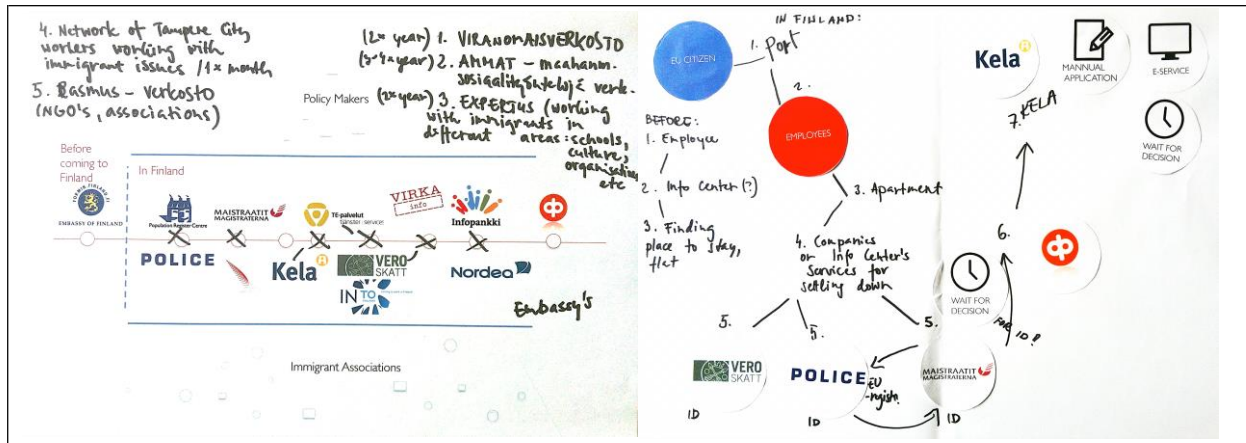 4. Network of Tampere City
workers working with
immigrant issues /1x month
5. Rasmus - verkosto
(NGO's, associations)
Policy Makers
(2x year) 1. VIRANOMAISVERKOSTO
(3-4x year) 2. AMMAT - maahanm.
verk.
(2x year) 3. EXPERTUS (working
with immigrants in
different areas: schools,
culture,
organisations
etc
Before
coming to
Finland
In Finland
FORMIN.FINLAND.FI
EMBASSY OF FINLAND
Population Register Centre
MAISTRAATIT
MAGISTRATERNA
TE-palvelut
tjänster · services
VIRKA
info
Infopankki
POLICE
Kela
VERO
SKATT
INTO
Nordea
Embassy's
Immigrant Associations
EU CITIZEN
IN FINLAND:
1. Port
2.
EMPLOYEES
BEFORE:
1. Employee
2. Info Center (?)
3. Finding
place to stay,
flat
3. Apartment
4. Companies
or Info Center's
Services for
settling down
5.
5.
5.
VERO
SKATT
ID
POLICE
ID
EU
-registr.
MAISTRAATIT
MAGISTRATERNA
ID
WAIT FOR
DECISION
FOR ID?
6.
7. KELA
Kela
MANNUAL
APPLICATION
E-SERVICE
WAIT FOR
DECISION